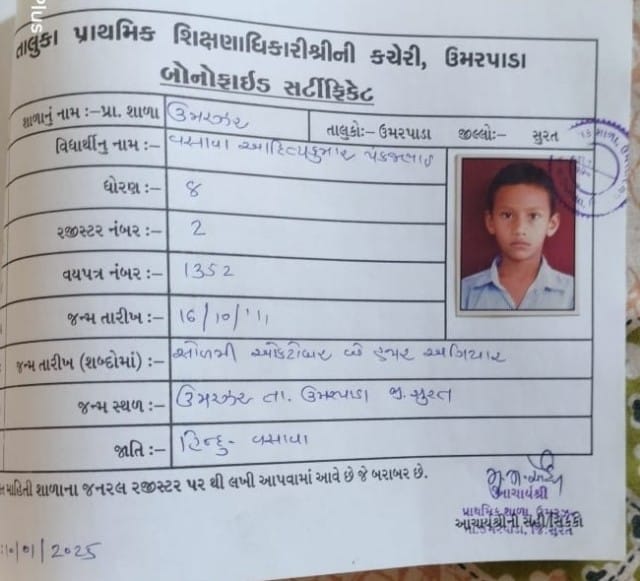 તાલુકા પ્રાથમિક શિક્ષણાધિકારીશ્રીની કચેરી, ઉમરપાડા
બોનોફાઇડ સર્ટીફિકેટ
શાળાનું નામ :-પ્રા. શાળા ઉમરઝર તાલુકો:- ઉમરપાડા જીલ્લો:- સુરત
વિદ્યાર્થીનુ નામ :- વસાવા આદિત્યકુમાર પંકજભાઇ
ધોરણ :- ૪
રજીસ્ટર નંબર :- 2
વયપત્ર નંબર :- 1352
જન્મ તારીખ :- 16/10/'11
જન્મ તારીખ (શબ્દોમાં) :- સોળમી ઓકટોબર બે હજાર અગિયાર
જન્મ સ્થળ :- ઉમરઝર તા. ઉમરપાડા જી. સુરત
જાતિ :- હિન્દુ - વસાવા
માહિતી શાળાના જનરલ રજીસ્ટર પર થી લખી આપવામાં આવે છે જે બરાબર છે.
આચાર્યશ્રી
પ્રાથમિક શાળા, ઉમરઝર
આચાર્યશ્રીની સહી/સિક્કો
તા. ઉમરપાડા, જિ. સુરત
10/01/2025
Plus